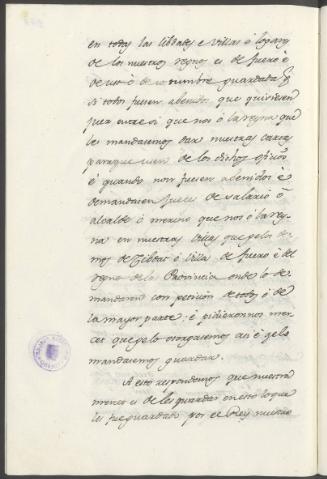 en todas las cibdades e villas ó logares
de los nuestros regnos es de fuero é
de uso é de costumbre guardada q̃
si todos fuesen abenidos que quisiesen
juez entre si que nos ó la reyna que
le mandaremos dar nuestras cartas
para que usen de los dichos oficios
é quando non fuesen abenidos é
demandasen jueces de salario ó
alcalde ó merino que nos ó la rey-
na en nuestras villas que gelos de-
mos de Cibdat ó Villa de fuero é del
regno de la Provincia onde lo de-
mandaren con peticion de todos ó de
la mayor parte: é pidieronnos mer-
cet que gelo otorgasemos asi é gelo
mandasemos guardar.
A esto respondemos que nuestra
merced es de les guardar en esto lo que
les fue guardado por el Rey nuestro